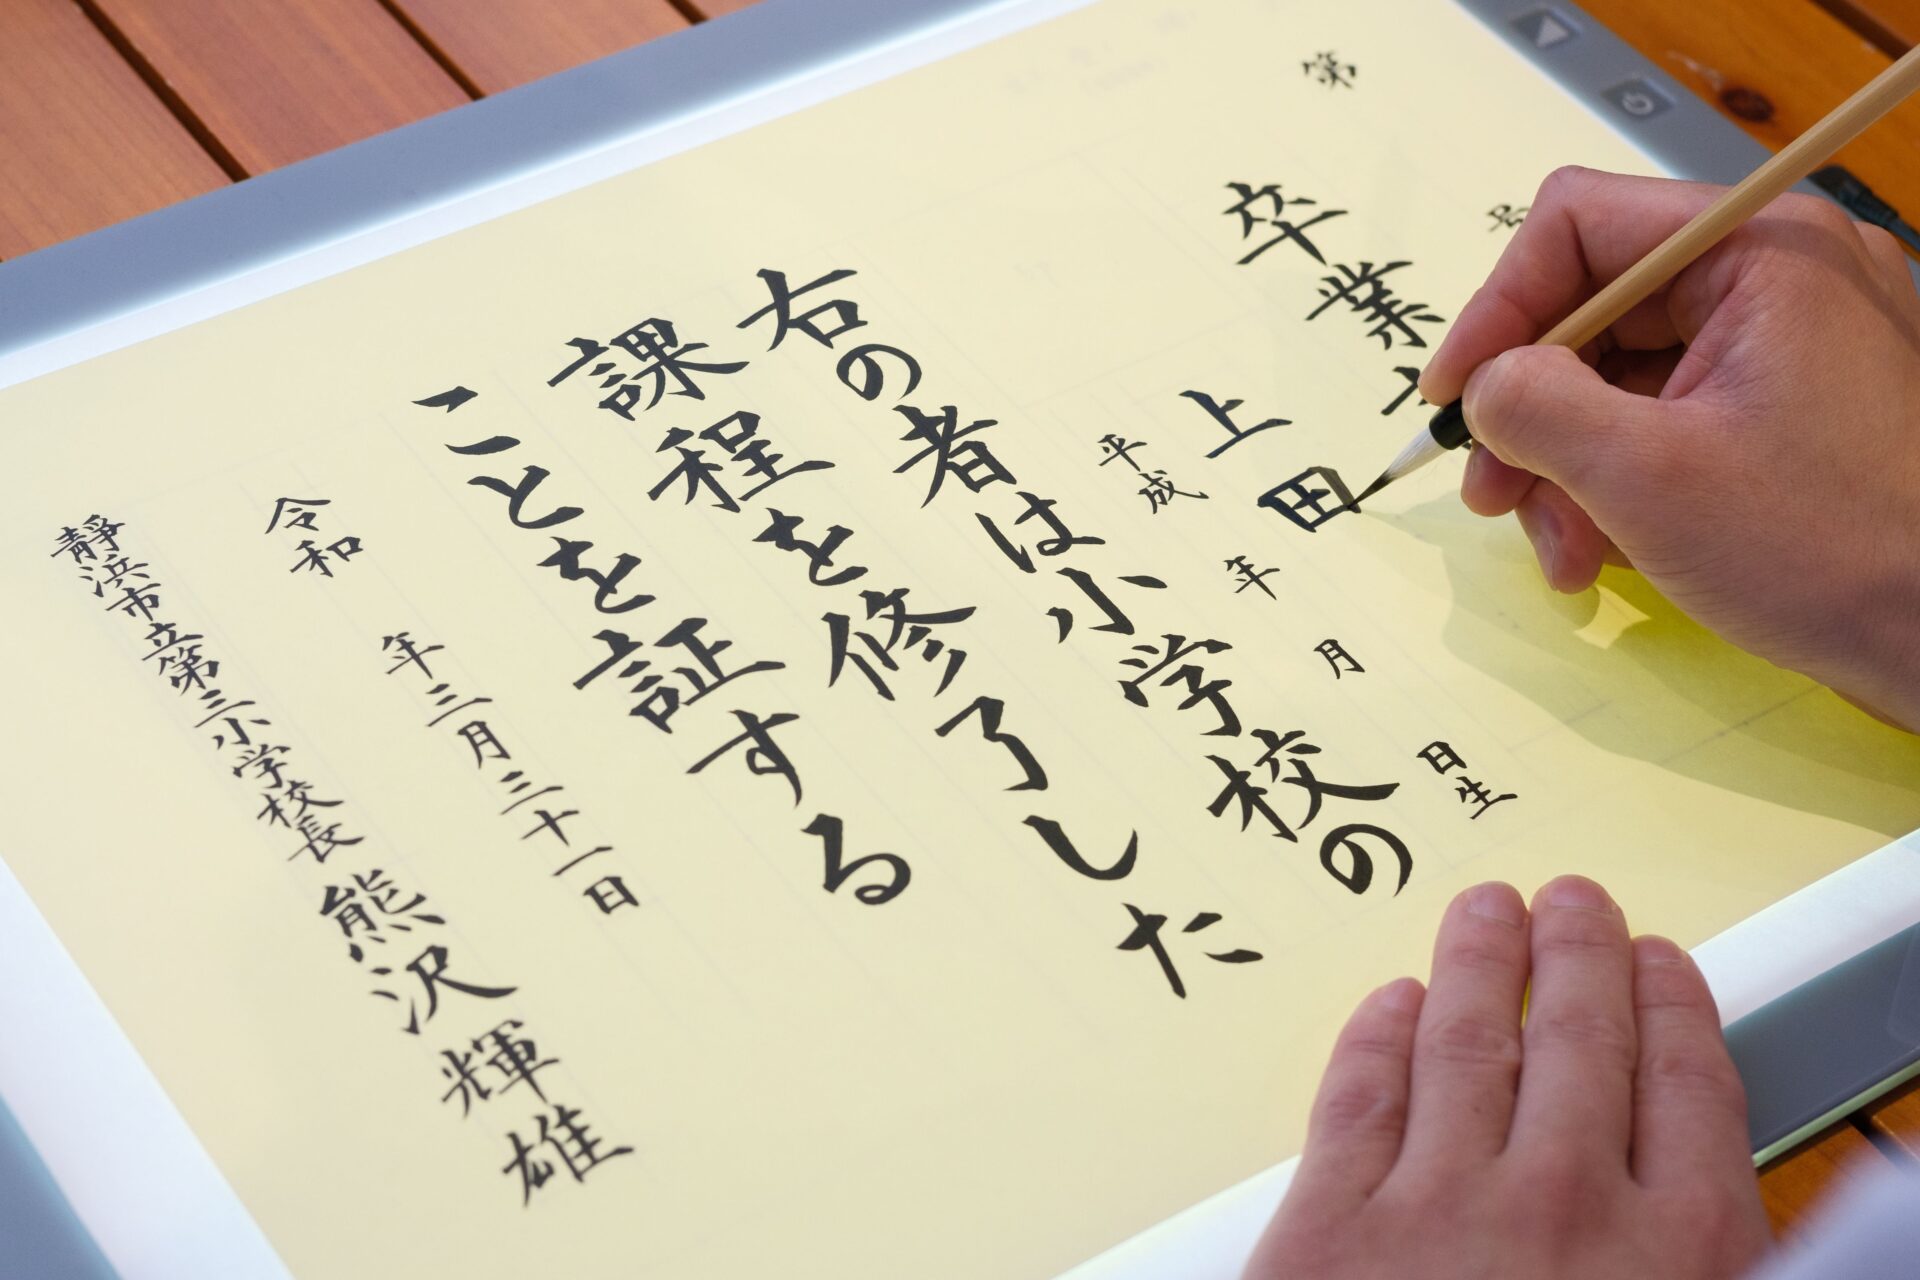 第 号
卒業
上田
平成 年 月 日生
右の者は小学校の
課程を修了した
ことを証する
令和 年三月三十一日
靜浜市立第三小学校長 熊沢輝雄